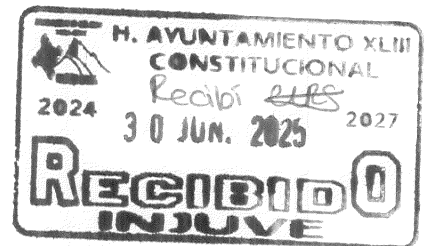 H. AYUNTAMIENTO XLIII
CONSTITUCIONAL
Recibí
2024 30 JUN. 2025 2027
RECIBIDO
INJUVE